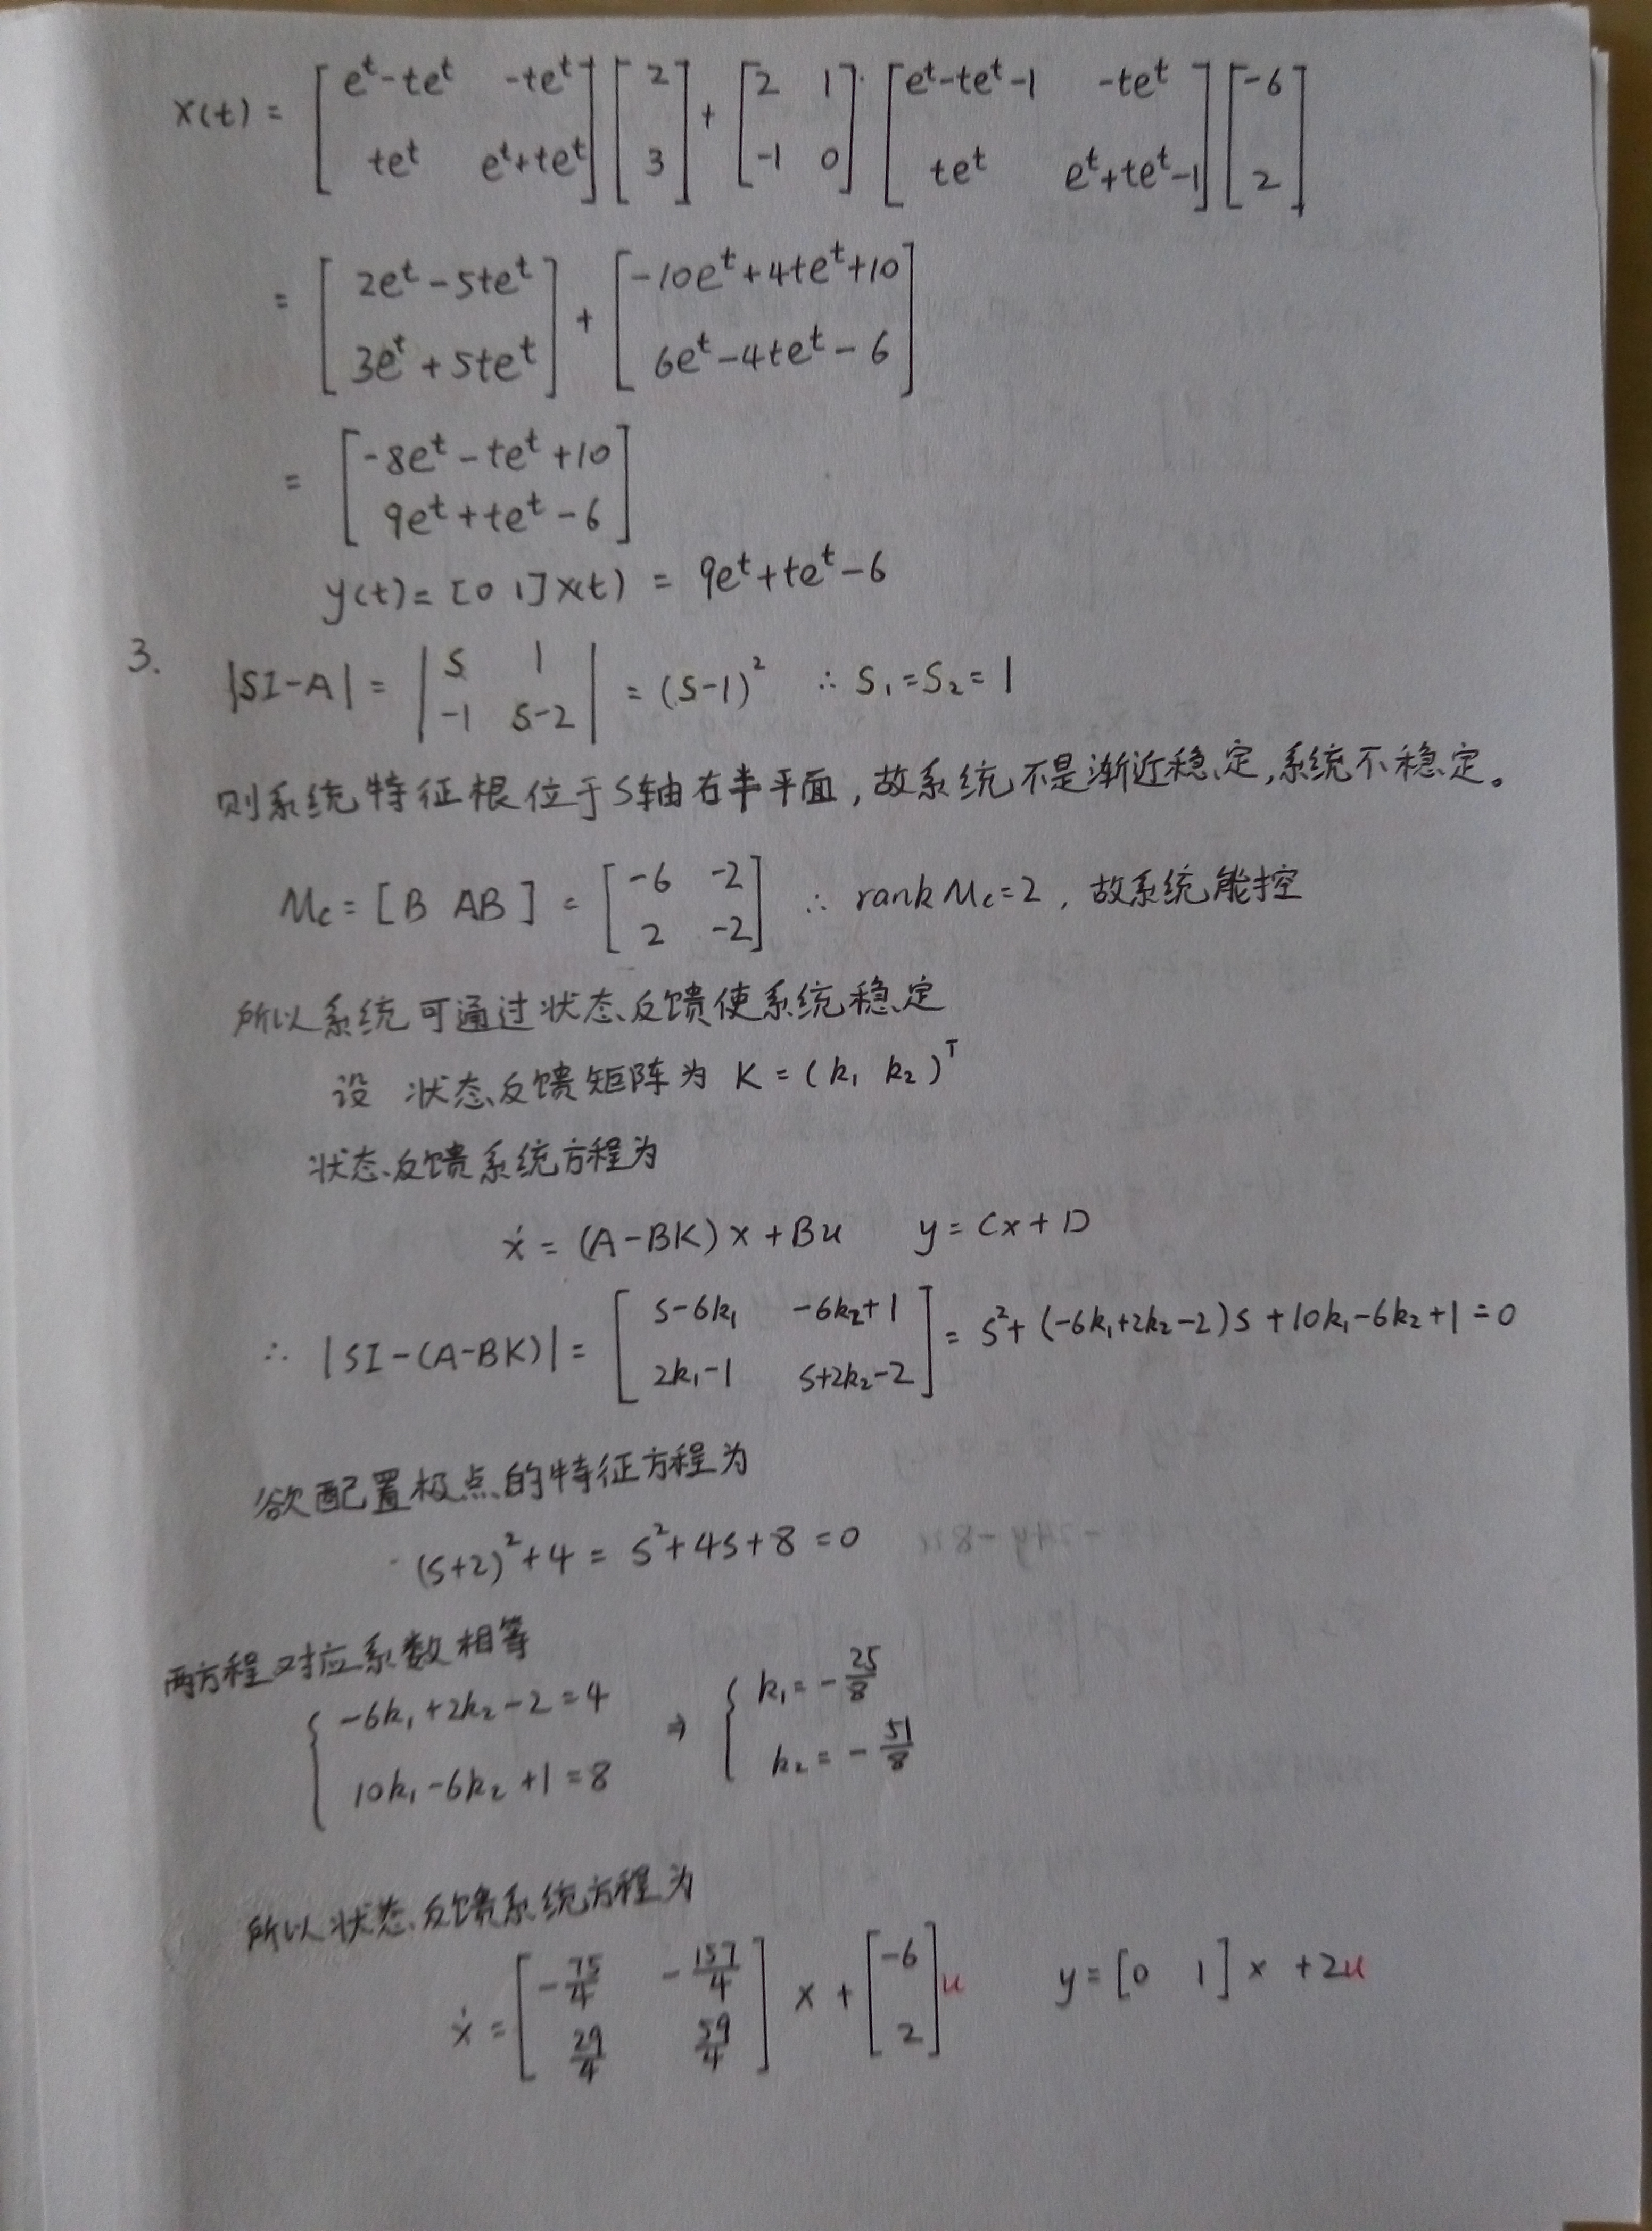 x(t) = [e^t-te^t  -te^t; te^t  e^t+te^t] [2; 3] + [2  1; -1  0]·[e^t-te^t-1  -te^t; te^t  e^t+te^t-1] [-6; 2]
= [2e^t-5te^t; 3e^t+5te^t] + [-10e^t+4te^t+10; 6e^t-4te^t-6]
= [-8e^t-te^t+10; 9e^t+te^t-6]
y(t)=[0 1]x(t) = 9e^t+te^t-6
3. |SI-A| = |S  1; -1  S-2| = (S-1)^2 ∴ S₁=S₂=1
则系统特征根位于S轴右半平面,故系统不是渐近稳定,系统不稳定。
Mc=[B AB] = [-6  -2; 2  -2] ∴ rank Mc=2, 故系统能控
所以系统可通过状态反馈使系统稳定
设 状态反馈矩阵为 K=(k₁ k₂)^T
状态反馈系统方程为
ẋ=(A-BK)x+Bu  y=Cx+D
∴ |SI-(A-BK)| = [S-6k₁  -6k₂+1; 2k₁-1  S+2k₂-2] = S²+(-6k₁+2k₂-2)S+10k₁-6k₂+1=0
欲配置极点的特征方程为
(S+2)²+4 = S²+4S+8=0
两方程对应系数相等
{-6k₁+2k₂-2=4; 10k₁-6k₂+1=8 ⇒ {k₁=-25/8; k₂=-51/8
所以状态反馈系统方程为
ẋ=[-75/4  -157/4; 29/4  59/4] x+[-6; 2]u  y=[0  1]x+2u